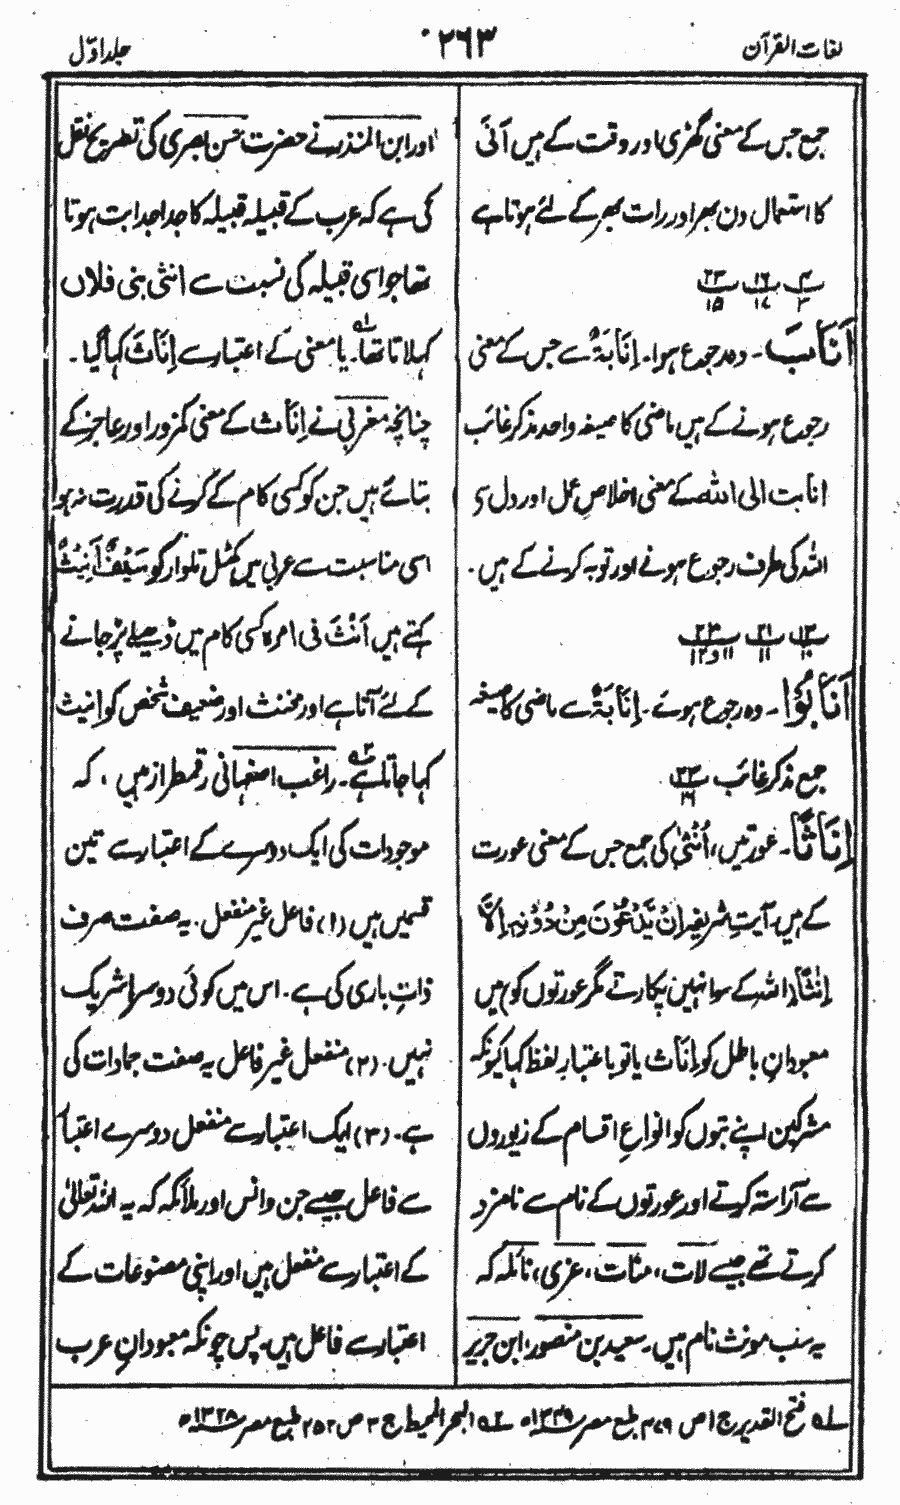 لغات القرآن
۲۶۳
جلد اوّل
جمع جس کے معنی گھڑی اور وقت کے ہیں آنٰی
کا استعمال دن بھر اور رات بھر کے لئے ہوتا ہے
پ۴ ۳ پ۱۶ ۱۷ پ۲۳ ۱۵
اَنَابَ ۔ وہ رجوع ہوا۔ اِنَابَۃٌ سے جس کے معنی
رجوع ہونے کے ہیں ماضی کا صیغہ واحد مذکر غائب
انابت الی اللہ کے معنی اخلاصِ عمل اور دل سے
اللہ کی طرف رجوع ہونے اور توبہ کرنے کے ہیں ۔
پ۱۳ ۱۰ پ۲۱ ۱۱ پ۲۳ ۱۱ و ۱۲
اَنَابُوْا ۔ وہ رجوع ہوئے ۔ اِنَابَۃٌ سے ماضی کا صیغہ
جمع مذکر غائب پ۲۳ ۱۶
اِنَاثًا ۔ عورتیں، اُنْثٰی کی جمع جس کے معنی عورت
کے ہیں، آیتِ شریفہ اِنْ یَّدْعُوْنَ مِنْ دُوْنِہٖ اِلَّا
اِنٰثًا (اللہ کے سوا نہیں پکارتے مگر عورتوں کو) میں
معبودانِ باطل کو اِنَاث یا تو باعتبارِ لفظ کہا کیونکہ
مشرکین اپنے بتوں کو انواع اقسام کے زیوروں
سے آراستہ کرتے اور عورتوں کے نام سے نامزد
کرتے تھے جیسے لات، منات، عزی، نائلہ کہ
یہ سب مونث نام ہیں۔ سعید بن منصور، ابن جریر
اور ابن المنذر نے حضرت حسن بصری کی تصریح نقل
کی ہے کہ عرب کے قبیلہ قبیلہ کا جدا جدا بت ہوتا
تھا جو اسی قبیلہ کی نسبت سے انثی بنی فلاں
کہلاتا تھا۱؎۔ یا معنی کے اعتبار سے اِنَاثَ کہا گیا ۔
چنانچہ مغربی نے اِنَاث کے معنی کمزور اور عاجز کے
بتائے ہیں جن کو کسی کام کے کرنے کی قدرت نہ ہو
اسی مناسبت سے عربی میں کٹھل تلوار کو سَیْفٌ اَنِیْثٌ
کہتے ہیں اَنُثَ فی امرہ کسی کام میں ڈھیلے پڑ جانے
کے لئے آتا ہے اور مخنث اور ضعیف شخص کو انیث
کہا جاتا ہے۲؎۔ راغب اصفہانی رقمطراز ہیں ، کہ
موجودات کی ایک دوسرے کے اعتبار سے تین
قسمیں ہیں (۱) فاعل غیر منفعل ۔ یہ صفت صرف
ذاتِ باری کی ہے ۔ اس میں کوئی دوسرا شریک
نہیں ۔ (۲) منفعل غیر فاعل یہ صفت جمادات کی
ہے ۔ (۳) ایک اعتبار سے منفعل دوسرے اعتبار
سے فاعل جیسے جن وانس اور ملائکہ کہ یہ اللہ تعالیٰ
کے اعتبار سے منفعل ہیں اور اپنی مصنوعات کے
اعتبار سے فاعل ہیں۔ پس چونکہ معبودانِ عرب
۱؎ فتح القدیر ج ۱ ص ۴۷۹ طبع مصر ۱۳۴۹ھ ۲؎ البحر المحیط ج ۳ ص ۳۵۲ طبع مصر ۱۳۲۸ھ